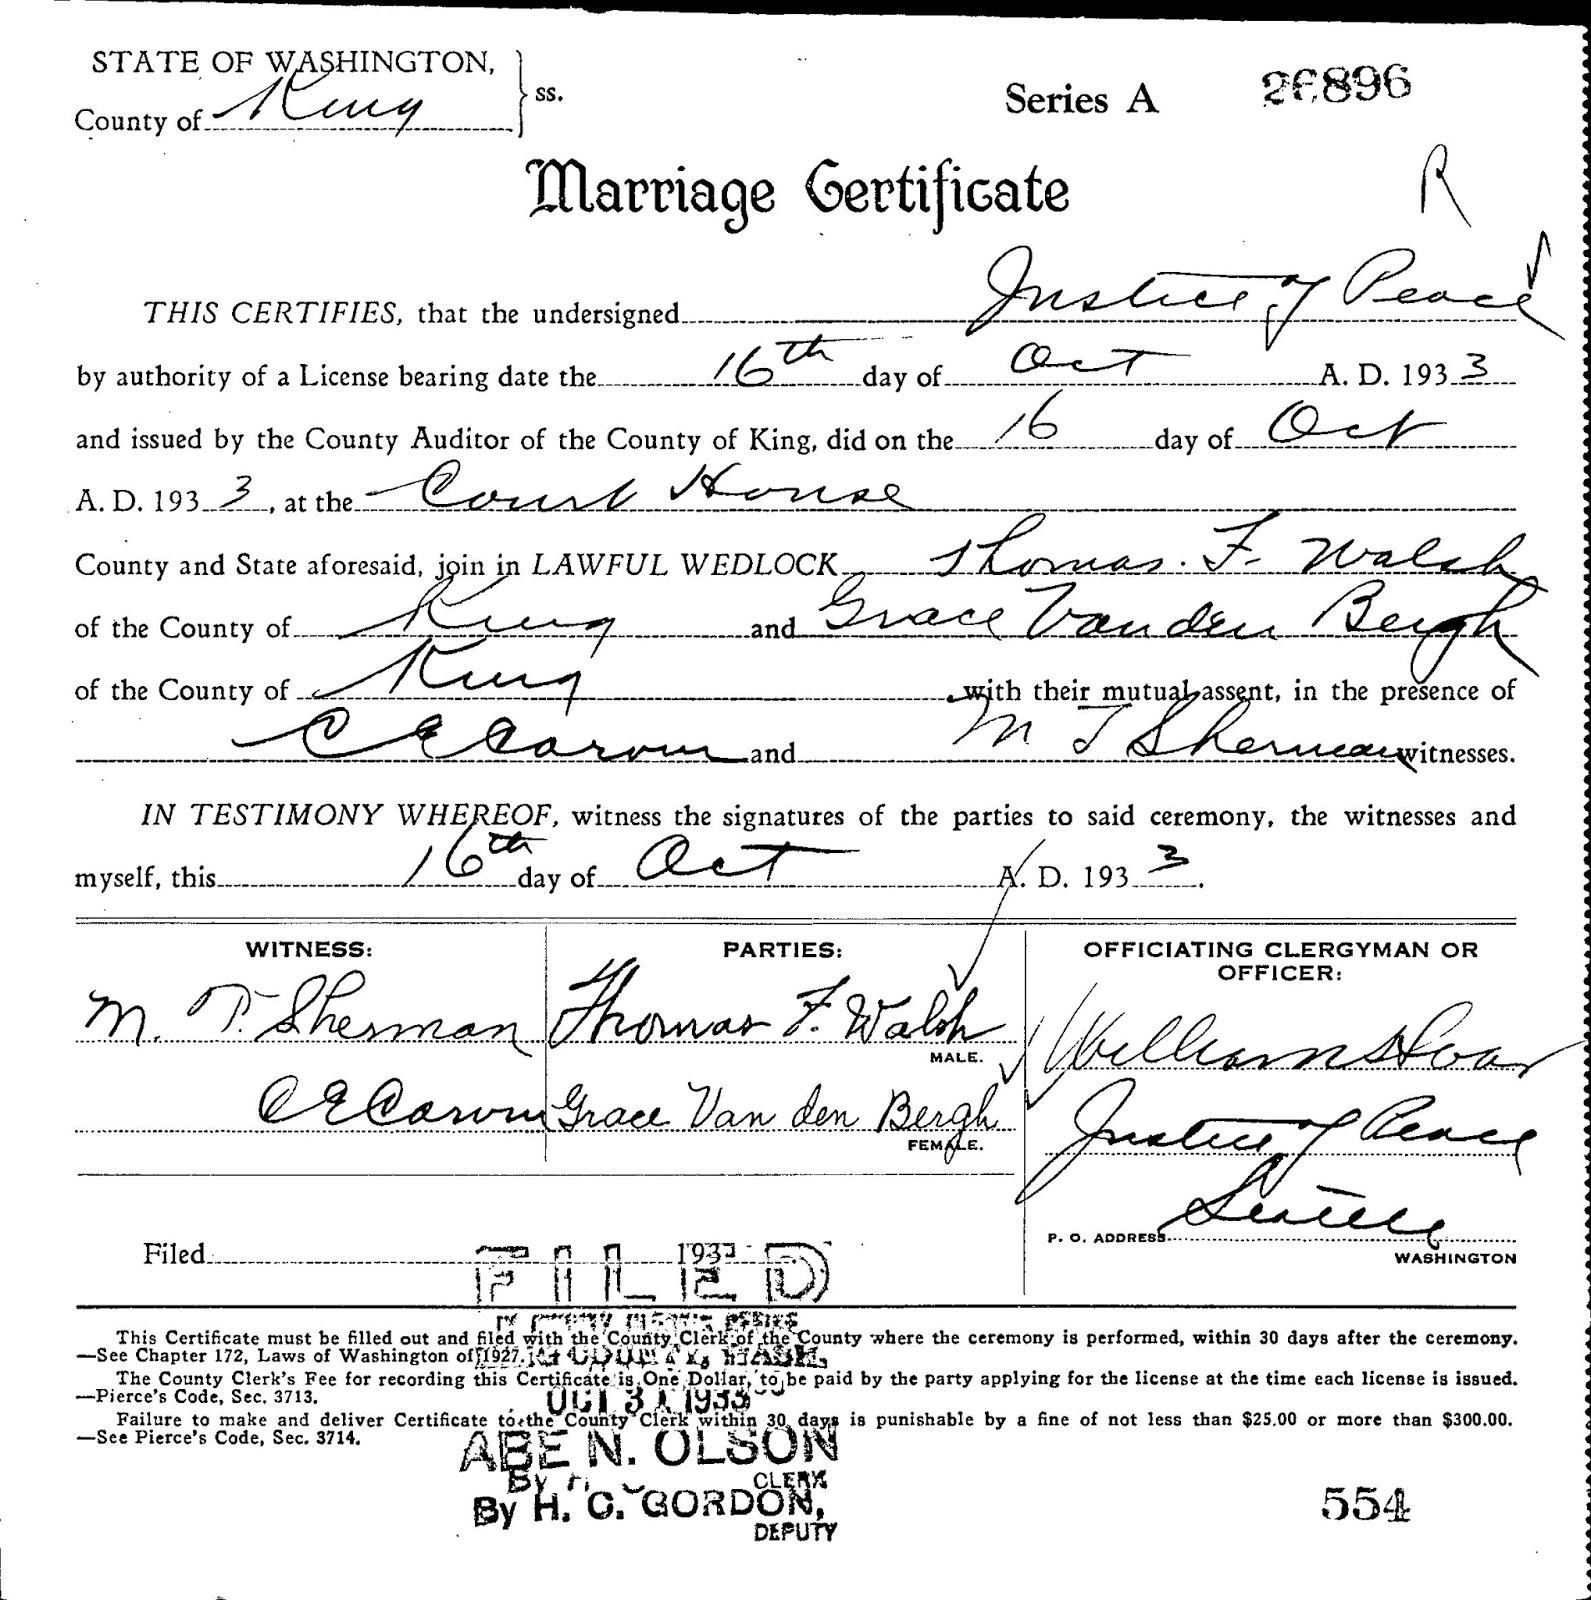 STATE OF WASHINGTON,
County of King } ss.
Series A 26896
Marriage Certificate
R
THIS CERTIFIES, that the undersigned Justice of Peace
by authority of a License bearing date the 16th day of Oct A. D. 1933
and issued by the County Auditor of the County of King, did on the 16 day of Oct
A. D. 1933, at the Court House
County and State aforesaid, join in LAWFUL WEDLOCK Thomas. F. Walsh
of the County of King and Grace Van den Bergh
of the County of King with their mutual assent, in the presence of
C E and M T Sherman witnesses.
IN TESTIMONY WHEREOF, witness the signatures of the parties to said ceremony, the witnesses and
myself, this 16th day of Oct A. D. 1933.
WITNESS:
M. T. Sherman
C E
PARTIES:
Thomas F. Walsh
MALE.
Grace Van den Bergh
FEMALE.
OFFICIATING CLERGYMAN OR
OFFICER:
William Hoar
Justice of Peace
P. O. ADDRESS Seattle
WASHINGTON
Filed 193
FILED
This Certificate must be filled out and filed with the County Clerk of the County where the ceremony is performed, within 30 days after the ceremony.
—See Chapter 172, Laws of Washington of 1927.
COUNTY, WASH.
The County Clerk's Fee for recording this Certificate is One Dollar, to be paid by the party applying for the license at the time each license is issued.
—Pierce's Code, Sec. 3713.
OCT 31 1933
Failure to make and deliver Certificate to the County Clerk within 30 days is punishable by a fine of not less than $25.00 or more than $300.00.
—See Pierce's Code, Sec. 3714.
ABE N. OLSON
By CLERK
By H. C. GORDON,
DEPUTY
554